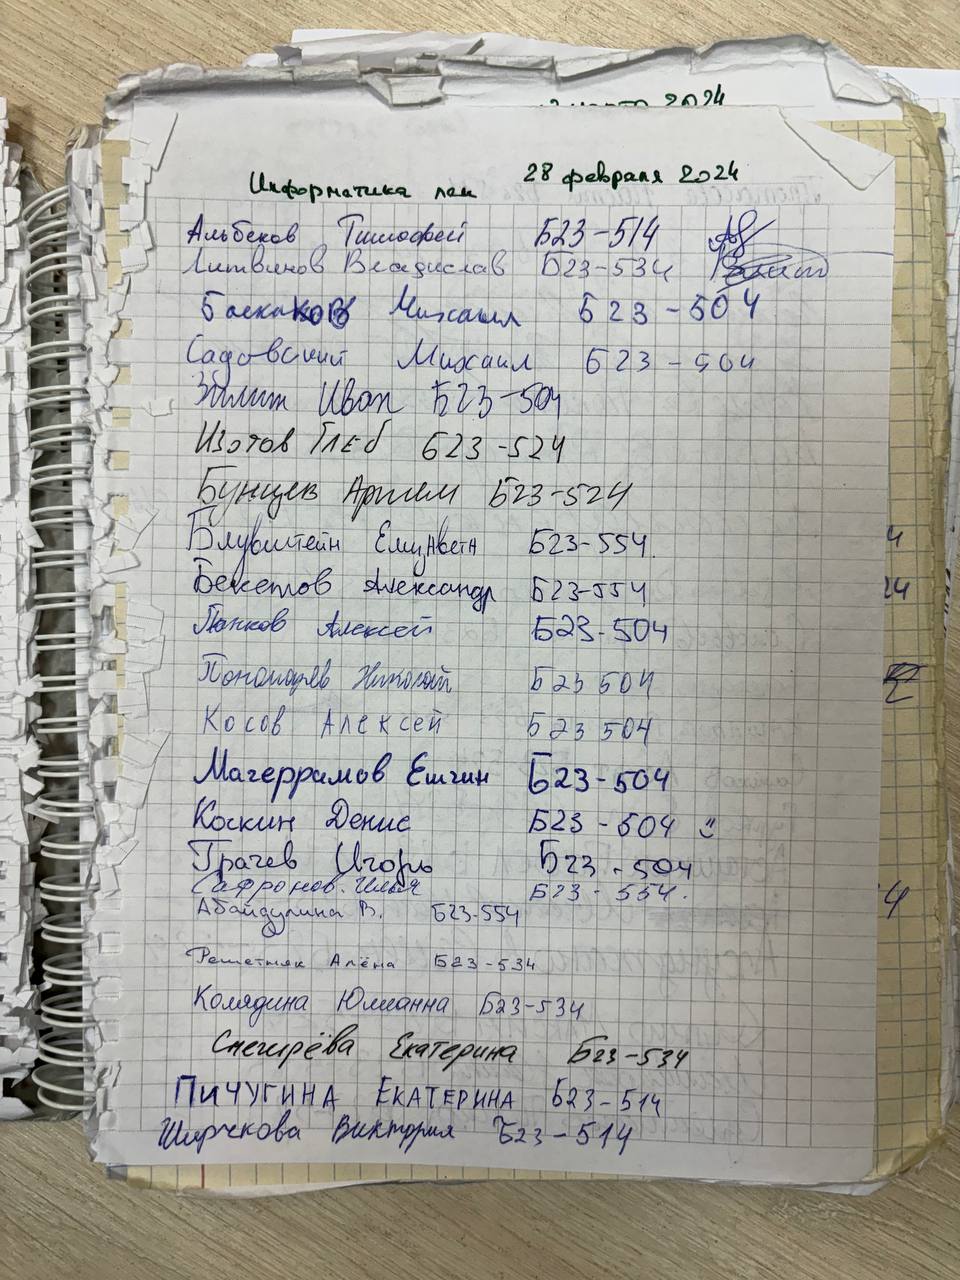 2024
Информатика лек 28 февраля 2024
Альбеков Тимофей Б23-514
Литвинов Владислав Б23-534
Баскаков Михаил Б23-504
Садовский Михаил Б23-504
Иван Б23-504
Изотов Глеб Б23-524
Бунцев Артем Б23-524
Блувштейн Елизавета Б23-554.
Бекетов Александр Б23-554
Панков Алексей Б23-504
Пономарёв Николай Б23 504
Косов Алексей Б23 504
Магеррамов Ельгин Б23-504
Коскин Денис Б23-504 :)
Грачев Игорь Б23-504
Сафронов.Илья Б23-554.
Абайдулина В. Б23-554
Решетняк Алёна Б23-534
Колядина Юлианна Б23-534
Снегирёва Екатерина Б23-534
ПИЧУГИНА ЕКАТЕРИНА Б23-514
Ширчкова Виктория Б23-514